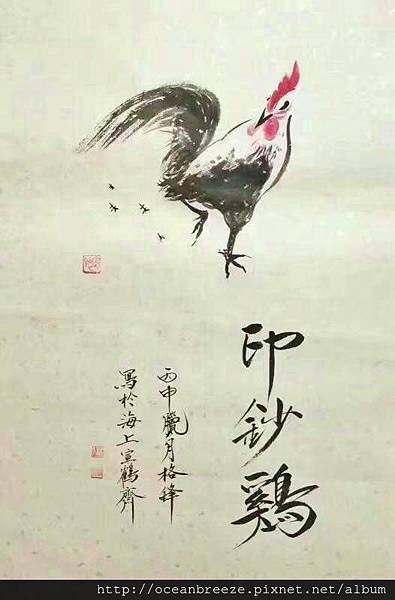 印鈔鷄
丙申臘月格鋒
寫於海上宣鶴齋
http://oceanbreeze.pixnet.net/album